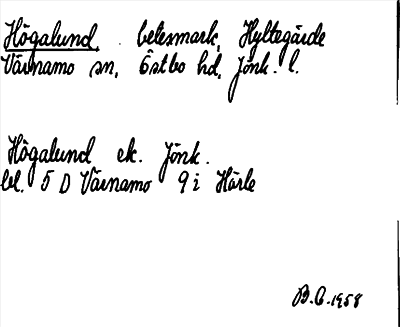 Högalund, betesmark, Hyltegärde
Värnamo sn, Östbo hd, Jönk. l.
Högalund ek. Jönk.
bl. 5 D Värnamo 9 i Härle
B.G. 1958